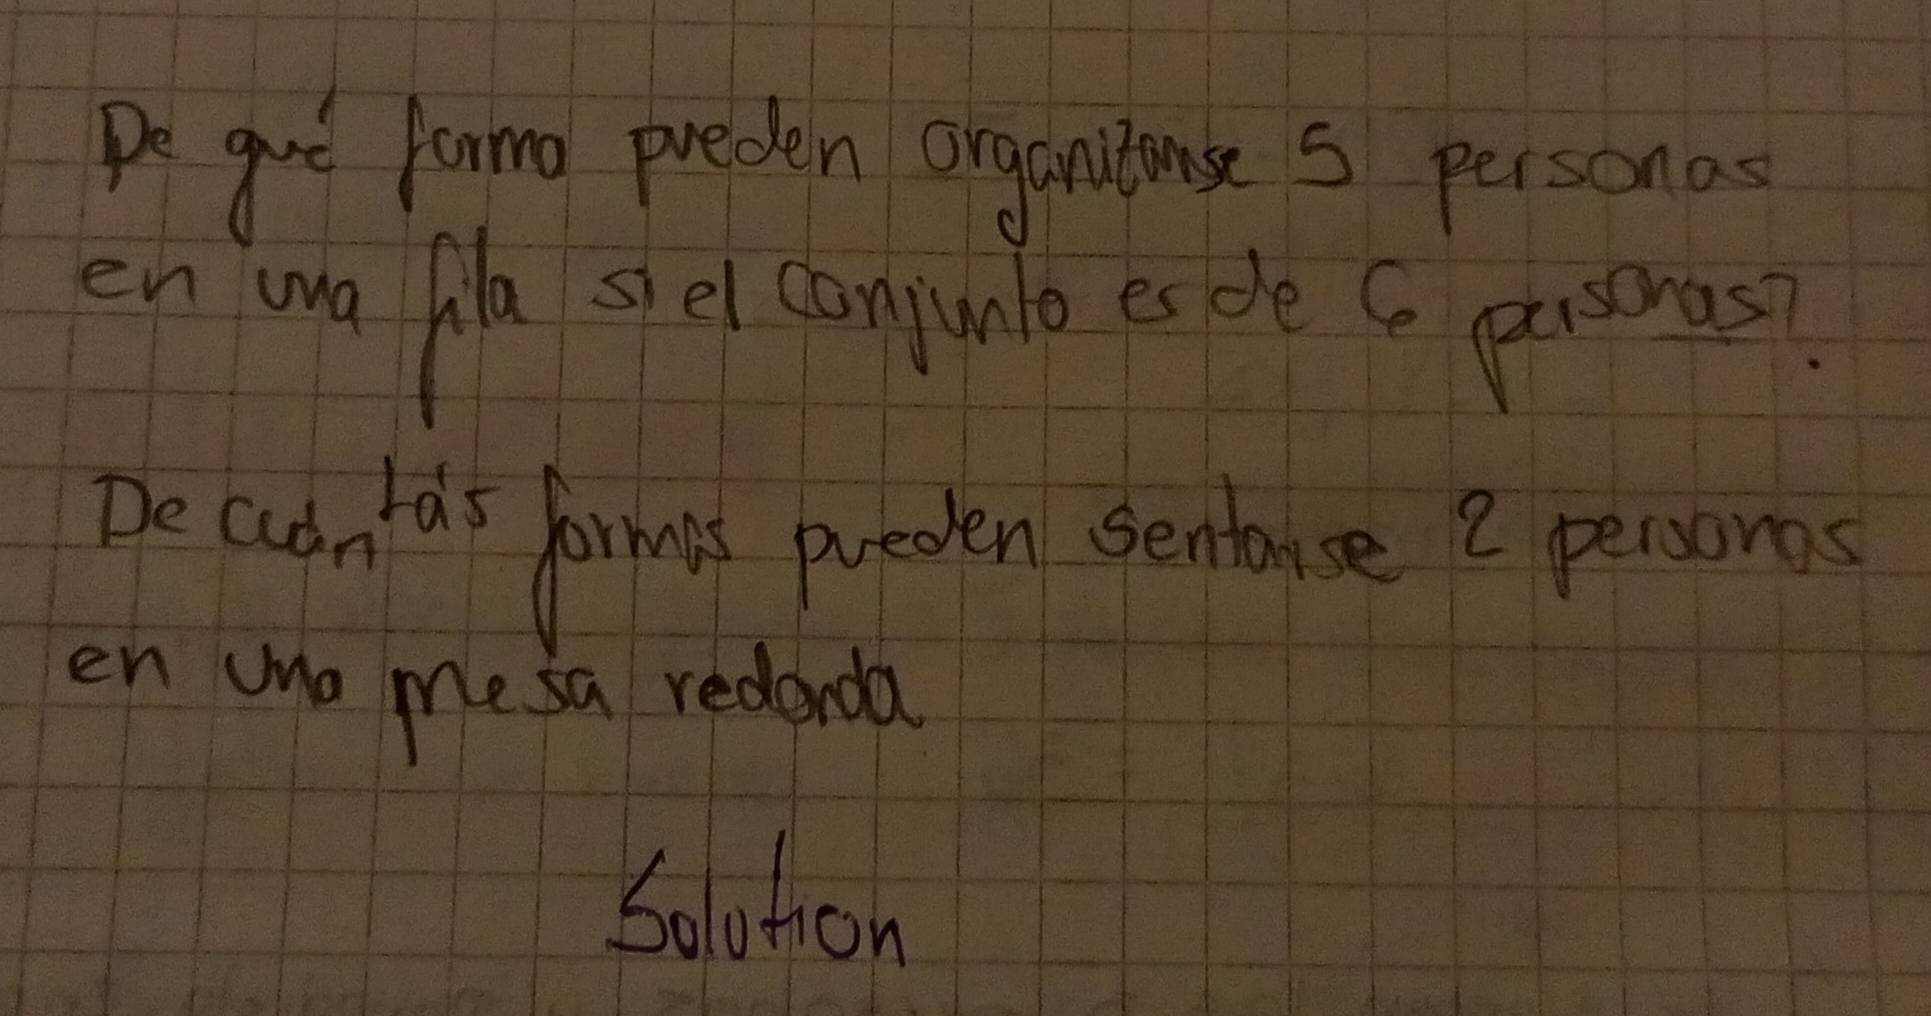 De qué forma pueden organizarse 5 personas
en una fila si el conjunto es de 6 personas?
De cuántas formas pueden sentarse 2 personas
en una mesa redonda
Solution